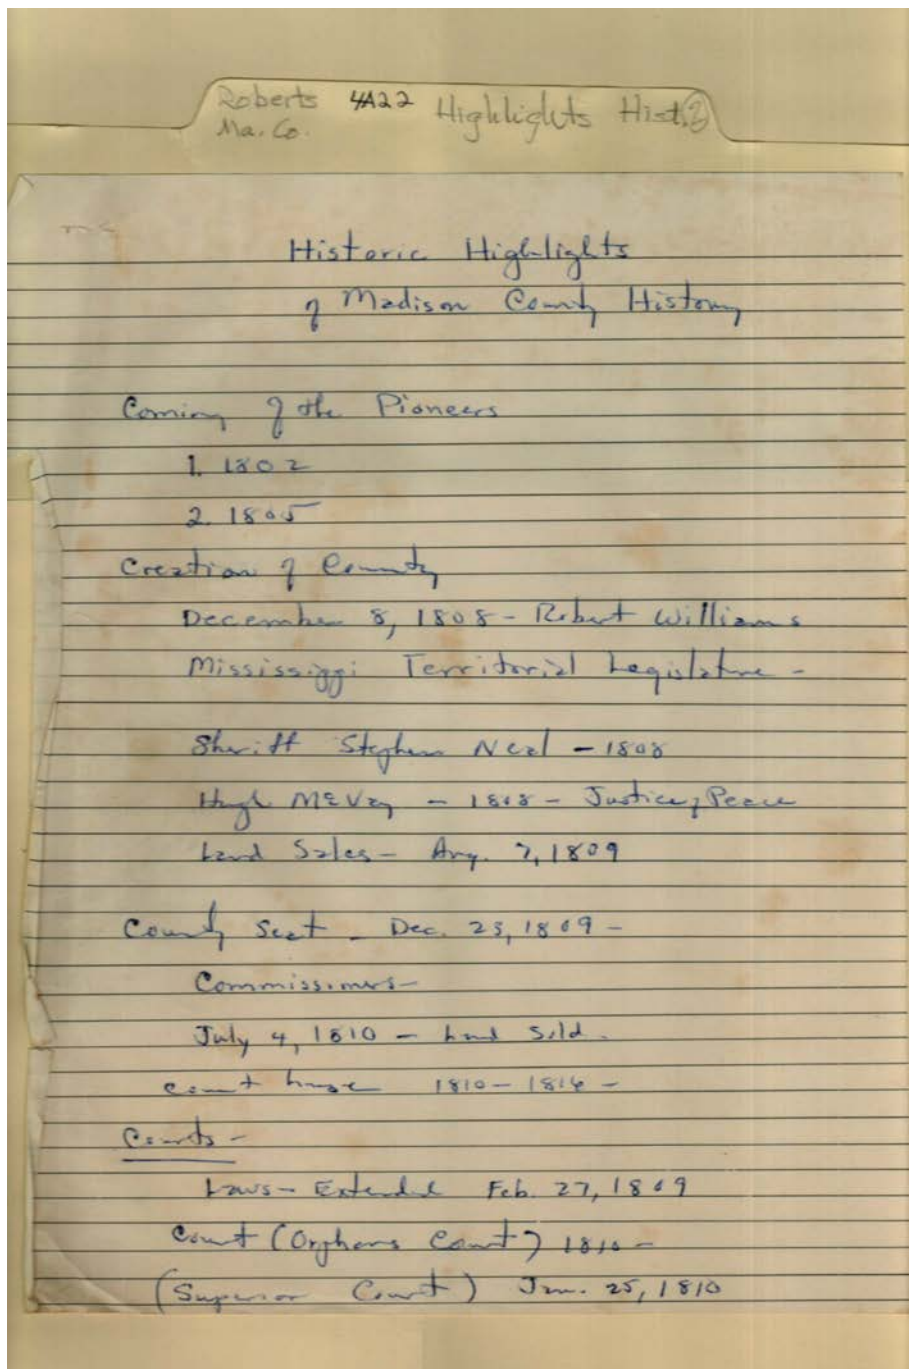 Roberts 4A22 Highlights Hist.
Ma. Co.
Historic Highlights
of Madison County History
Coming of the Pioneers
1. 1802
2. 1805
Creation of County
December 8, 1808 - Robert Williams
Mississippi Territorial Legislature -
Sheriff Stephen Neal - 1808
Hugh McVay - 1808 - Justice of Peace
Land Sales - Aug. 7, 1809
County Seat - Dec. 23, 1809 -
Commissioners -
July 4, 1810 - Land Sold.
Court house 1810 - 1816 -
Courts -
Laws - Extended Feb. 27, 1809
Court (Orphans Court) 1810 -
(Superior Court) Jan. 25, 1810